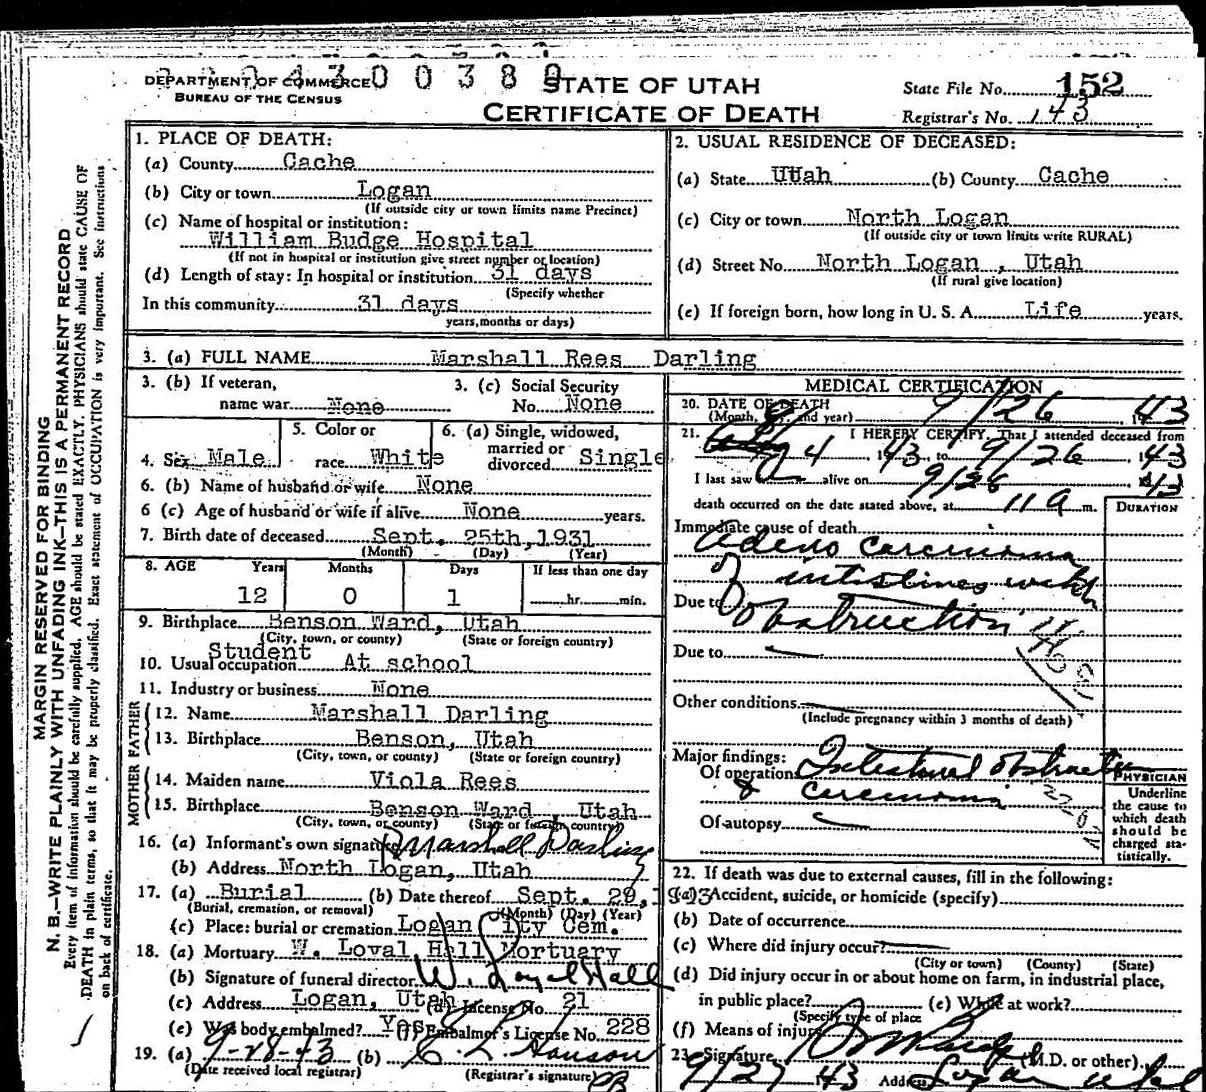 0 0 4 3 0 0 3 8 9
DEPARTMENT OF COMMERCE
BUREAU OF THE CENSUS
STATE OF UTAH
CERTIFICATE OF DEATH
State File No. 152
Registrar's No. 143
MARGIN RESERVED FOR BINDING
N. B.—WRITE PLAINLY WITH UNFADING INK—THIS IS A PERMANENT RECORD
Every item of information should be carefully supplied. AGE should be stated EXACTLY. PHYSICIANS should state CAUSE OF
DEATH in plain terms, so that it may be properly classified. Exact statement of OCCUPATION is very important. See instructions
on back of certificate.
1. PLACE OF DEATH:
(a) County Cache
(b) City or town Logan
(If outside city or town limits name Precinct)
(c) Name of hospital or institution:
William Budge Hospital
(If not in hospital or institution give street number or location)
(d) Length of stay: In hospital or institution 31 days
(Specify whether
In this community 31 days
years, months or days)
2. USUAL RESIDENCE OF DECEASED:
(a) State Utah (b) County Cache
(c) City or town North Logan
(If outside city or town limits write RURAL)
(d) Street No. North Logan , Utah
(If rural give location)
(e) If foreign born, how long in U. S. A. Life years.
3. (a) FULL NAME Marshall Rees Darling
3. (b) If veteran,
name war None
3. (c) Social Security
No. None
4. Sex Male
5. Color or
race White
6. (a) Single, widowed,
married or
divorced Single
6. (b) Name of husband or wife None
6 (c) Age of husband or wife if alive None years.
7. Birth date of deceased Sept. 25th, 1931
(Month) (Day) (Year)
8. AGE Years Months Days If less than one day
12 0 1 hr. min.
9. Birthplace Benson Ward, Utah
(City, town, or county) (State or foreign country)
Student
10. Usual occupation At school
11. Industry or business None
FATHER
12. Name Marshall Darling
13. Birthplace Benson, Utah
(City, town, or county) (State or foreign country)
MOTHER
14. Maiden name Viola Rees
15. Birthplace Benson Ward Utah
(City, town, or county) (State or foreign country)
16. (a) Informant's own signature Marshall Darling
(b) Address North Logan, Utah
17. (a) Burial (b) Date thereof Sept. 29, 1943
(Burial, cremation, or removal) (Month) (Day) (Year)
(c) Place: burial or cremation Logan City Cem.
18. (a) Mortuary W. Loyal Hall Mortuary
(b) Signature of funeral director W. Loyal Hall
(c) Address Logan, Utah (d) License No. 21
(e) Was body embalmed? Yes (f) Embalmor's License No. 228
19. (a) 9-28-43 (b) C. L. Hanson
(Date received local registrar) (Registrar's signature)
MEDICAL CERTIFICATION
20. DATE OF DEATH
(Month, day, and year) 9/26 1943
21. I HEREBY CERTIFY, That I attended deceased from
4, 1943, to 9/26, 1943
I last saw alive on 9/26 1943
death occurred on the date stated above, at 11 a m.
DURATION
Immediate cause of death
Adeno carcinoma
of intestines with
Due to obstruction
Due to
Other conditions
(Include pregnancy within 3 months of death)
Major findings:
Of operations Intestinal obstruction
& carcinoma
Of autopsy
PHYSICIAN
Underline
the cause to
which death
should be
charged sta-
tistically.
22. If death was due to external causes, fill in the following:
(a) Accident, suicide, or homicide (specify)
(b) Date of occurrence
(c) Where did injury occur?
(City or town) (County) (State)
(d) Did injury occur in or about home on farm, in industrial place,
in public place? (e) While at work?
(Specify type of place
(f) Means of injury
23. Signature (M.D. or other)
9/27 1943 Address Logan Utah